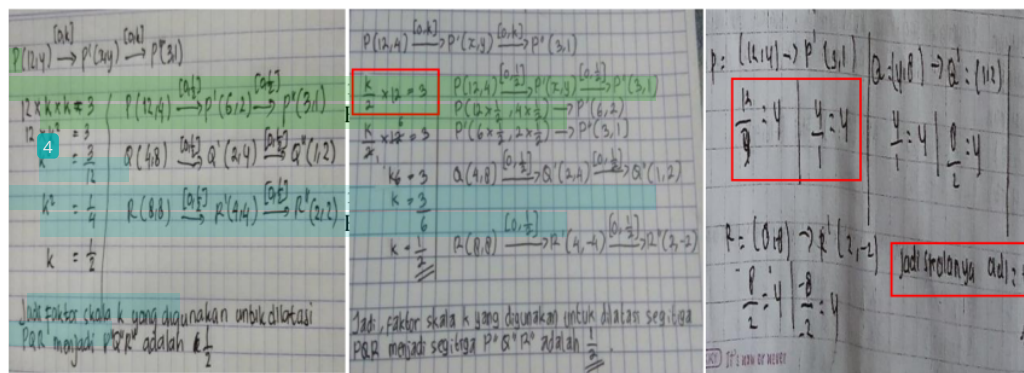 P(12,4) [0,k]→ P'(x,y) [0,k]→ P"(3,1)
12 x k x k = 3
12 x k² = 3
4
k² = 3/12
k² = 1/4
k = 1/2
P(12,4) [0,1/2]→ P'(6,2) [0,1/2]→ P"(3,1)
Q(4,8) [0,1/2]→ Q'(2,4) [0,1/2]→ Q"(1,2)
R(8,8) [0,1/2]→ R'(4,4) [0,1/2]→ R"(2,2)
Jadi faktor skala k yang digunakan untuk dilatasi
PQR menjadi P"Q"R" adalah 1/2
P(12,4) [0,k]→ P'(x,y) [0,k]→ P"(3,1)
k/2 x 12 = 3
k/2 x 12 = 3
k6 = 3
k = 3/6
k = 1/2
P(12,4) [0,1/2]→ P'(x,y) [0,1/2]→ P"(3,1)
P(12 x 1/2, 4 x 1/2) → P'(6,2)
P'(6 x 1/2, 2 x 1/2) → P"(3,1)
Q(4,8) [0,1/2]→ Q'(2,4) [0,1/2]→ Q"(1,2)
R(8,8) [0,1/2]→ R'(4,-4) [0,1/2]→ R"(2,-2)
Jadi, faktor skala k yang digunakan untuk dilatasi segitiga
PQR menjadi segitiga P"Q"R" adalah 1/2.
P = (12,4) → P' (3,1
4/1 = 4
Q = (4,8) → Q' = (1,2)
4/1 = 4 | 8/2 = 4
→ R' (2,-2)
8/2 = 4 | -8/-2 = 4
Jadi skalanya adl =
It's now or never